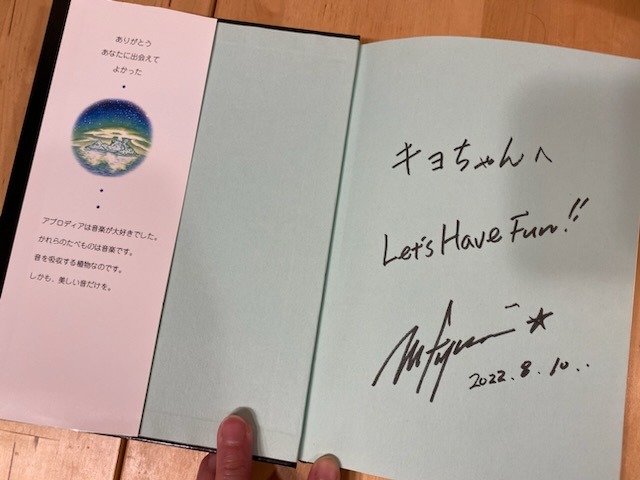 ありがとう
あなたに出会えて
よかった
アプロディアは音楽が大好きでした。
かれらのたべものは音楽です。
音を吸収する植物なのです。
しかも、美しい音だけを。
キヨちゃんへ
Let's Have Fun!!
2022.8.10..